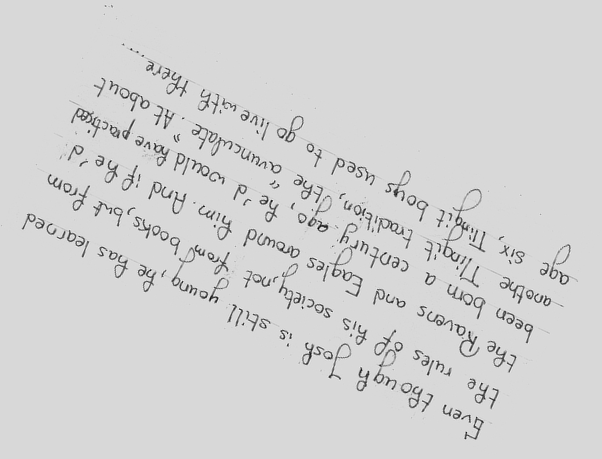 Even though Josh is still young, he has learned
the rules of his society, not from books, but from
the Ravens and Eagles around him. And if he'd
been born a century ago, he'd would have practised
anothe Tlingit tradition, "the avunculate". At about
age six, Tlingit boys used to go live with there
....